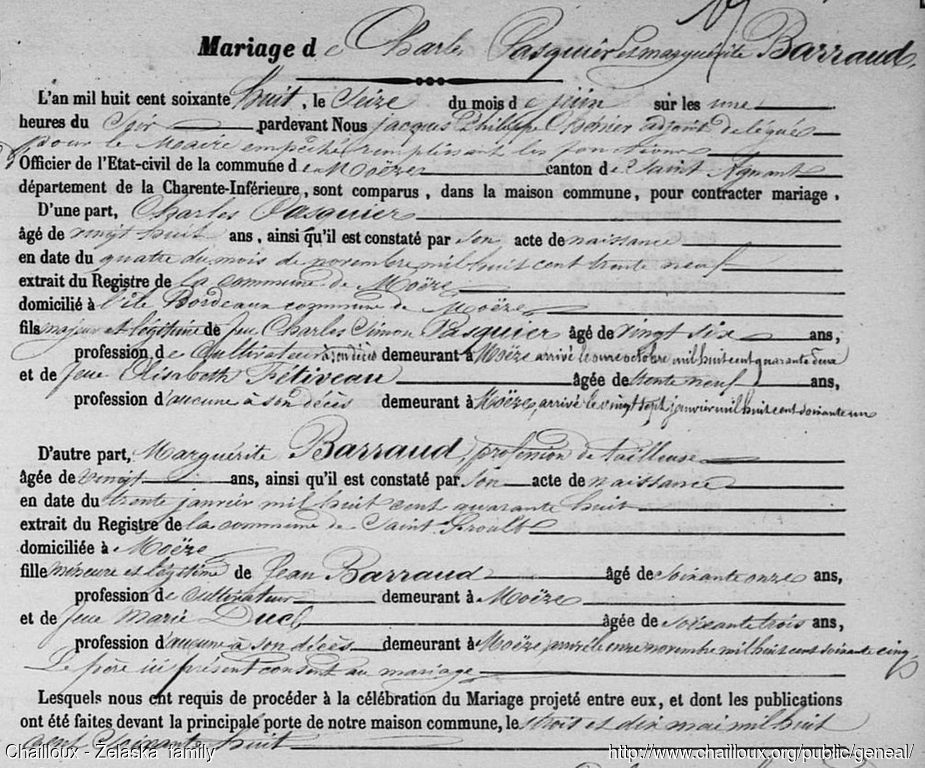 Mariage de Charles Pasquier et marguerite Barraud,
L'an mil huit cent soixante huit, le Seize du mois de juin sur les une
heures du Soir pardevant Nous Jacques Philippe adjoint delégué
pour le Maire empêché remplissant les fonctions
Officier de l'Etat-civil de la commune de Moëze canton de Saint Agnant
département de la Charente-Inférieure, sont comparus, dans la maison commune, pour contracter mariage.
D'une part, Charles Pasquier
âgé de vingt huit ans, ainsi qu'il est constaté par son acte de naissance
en date du quatre du mois de novembre mil huit cent trente neuf
extrait du Registre de la commune de Moëze
domicilié à l'île Bordeaux commune de Moëze
fils majeur et légitime de feu Charles Simon Pasquier âgé de vingt six ans,
profession de Cultivateur à son décès demeurant à Moëze arrivé le onze octobre mil huit cent quarante deux
et de feue Elisabeth Fétiveau âgée de trente neuf ans,
profession d'aucune à son décès demeurant à Moëze, arrivé le vingt sept janvier mil huit cent soixante un
D'autre part, Marguérite Barraud, profession de tailleuse
âgée de vingt ans, ainsi qu'il est constaté par son acte de naissance
en date du trente janvier mil huit cent quarante huit
extrait du Registre de la commune de Saint-Froult
domiciliée à Moëze
fille mineure et légitime de Jean Barraud âgé de soixante onze ans,
profession de cultivateur demeurant à Moëze
et de feue Marie Duc âgée de soixante trois ans,
profession d'aucune à son décès demeurant à Moëze arrivé le onze novembre mil huit cent soixante cinq
Le père ici présent consent au mariage
Lesquels nous ont requis de procéder à la célébration du Mariage projeté entre eux, et dont les publications
ont été faites devant la principale porte de notre maison commune, le trois et dix mai mil huit
cent soixante huit
Chailloux - Zelaska family
http://www.chailloux.org/public/geneal/